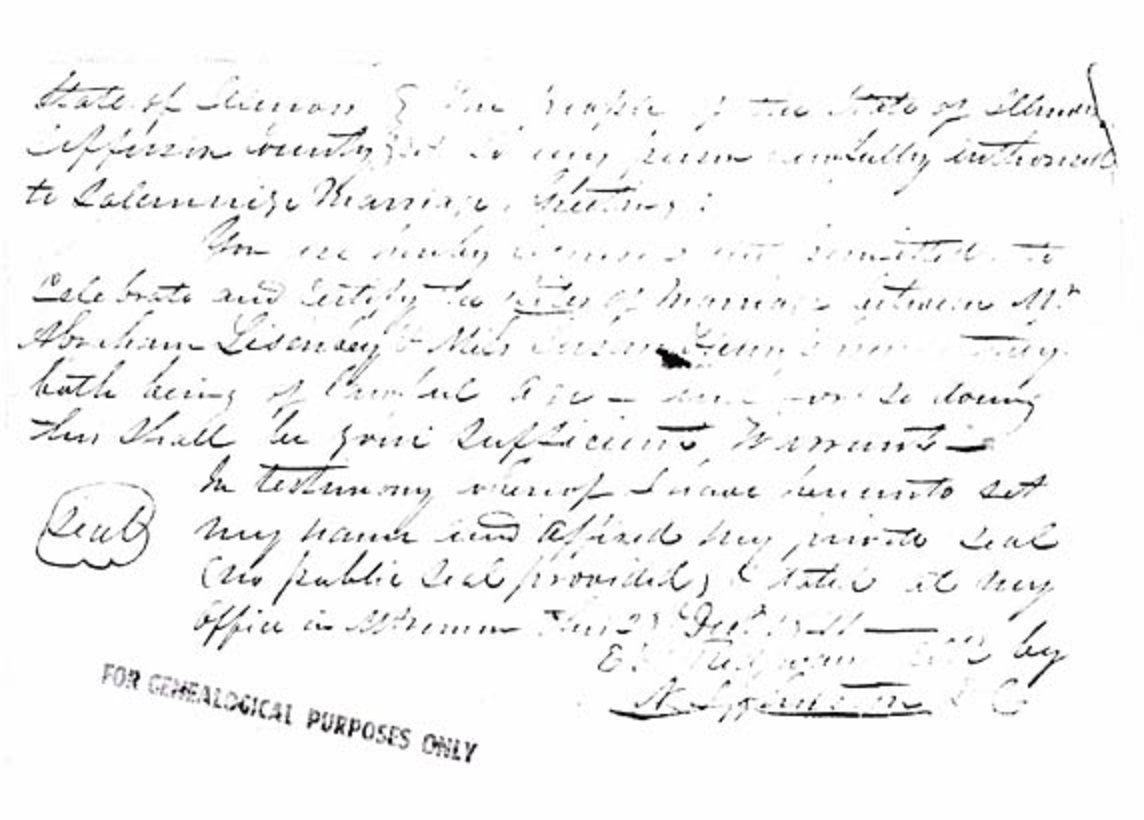 State of Illinois } The People of the State of Illinois
Jefferson County } To any person lawfully authorised
to Solemnize Marriage, Greeting:
You are hereby permitted to
Celebrate and Certify the rites of Marriage between Mr
Abraham Lisenbey & Miss Susan county
both being of lawful Age — and for so doing
this shall be your sufficient Warrant —
In testimony whereof I have hereunto set
Seal
my name and affixed my private seal
(no public seal provided) & dated at my
office in Mt Vernon this Dect
E by
N Johnson D C
FOR GENEALOGICAL PURPOSES ONLY